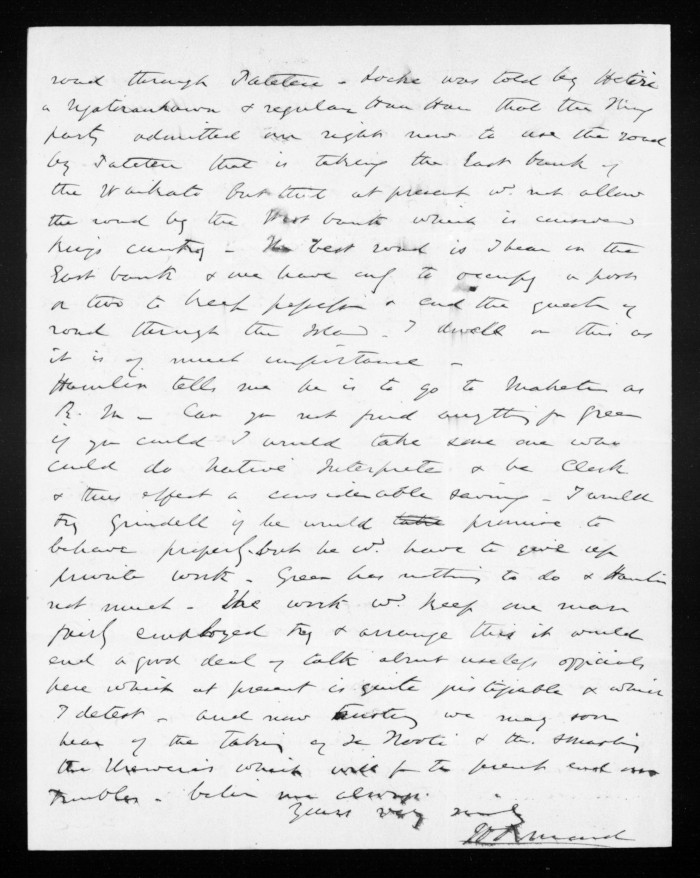 road through Patetere - Locke was told by Hetiri
a Ngatiraukawa & regular Hau Hau that the King
party admitted our right now to use the road
by Patetere that is taking the East bank of
the Waikato but that at present wd. not allow
the road by the West bank which is
Kings country - The best road is I hear on the
East bank & we have only to occupy a post
or two to keep possession & end the quest of
road through the Island. I dwell on this as
it is of much importance -
Hamlin tells me he is to go to Maketu as
R. M - Can you not find anything for Green
if you could I would take some one who
could do Native Interpreter & be Clerk
& thus effect a considerable saving - I would
try Grindell if he would promise to
behave properly but he wd. have to give up
private work - Green has nothing to do & Hamlin
not much - The work wd. keep one man
fairly employed try & arrange this it would
end a good deal of talk about useless officials
here which at present is quite justifiable & which
I detest - and now trusting we may soon
hear of the taking of Te Kooti & the smashing
the Urewera's which will for the present end our
troubles - believe me always
Yours very
J D Ormond